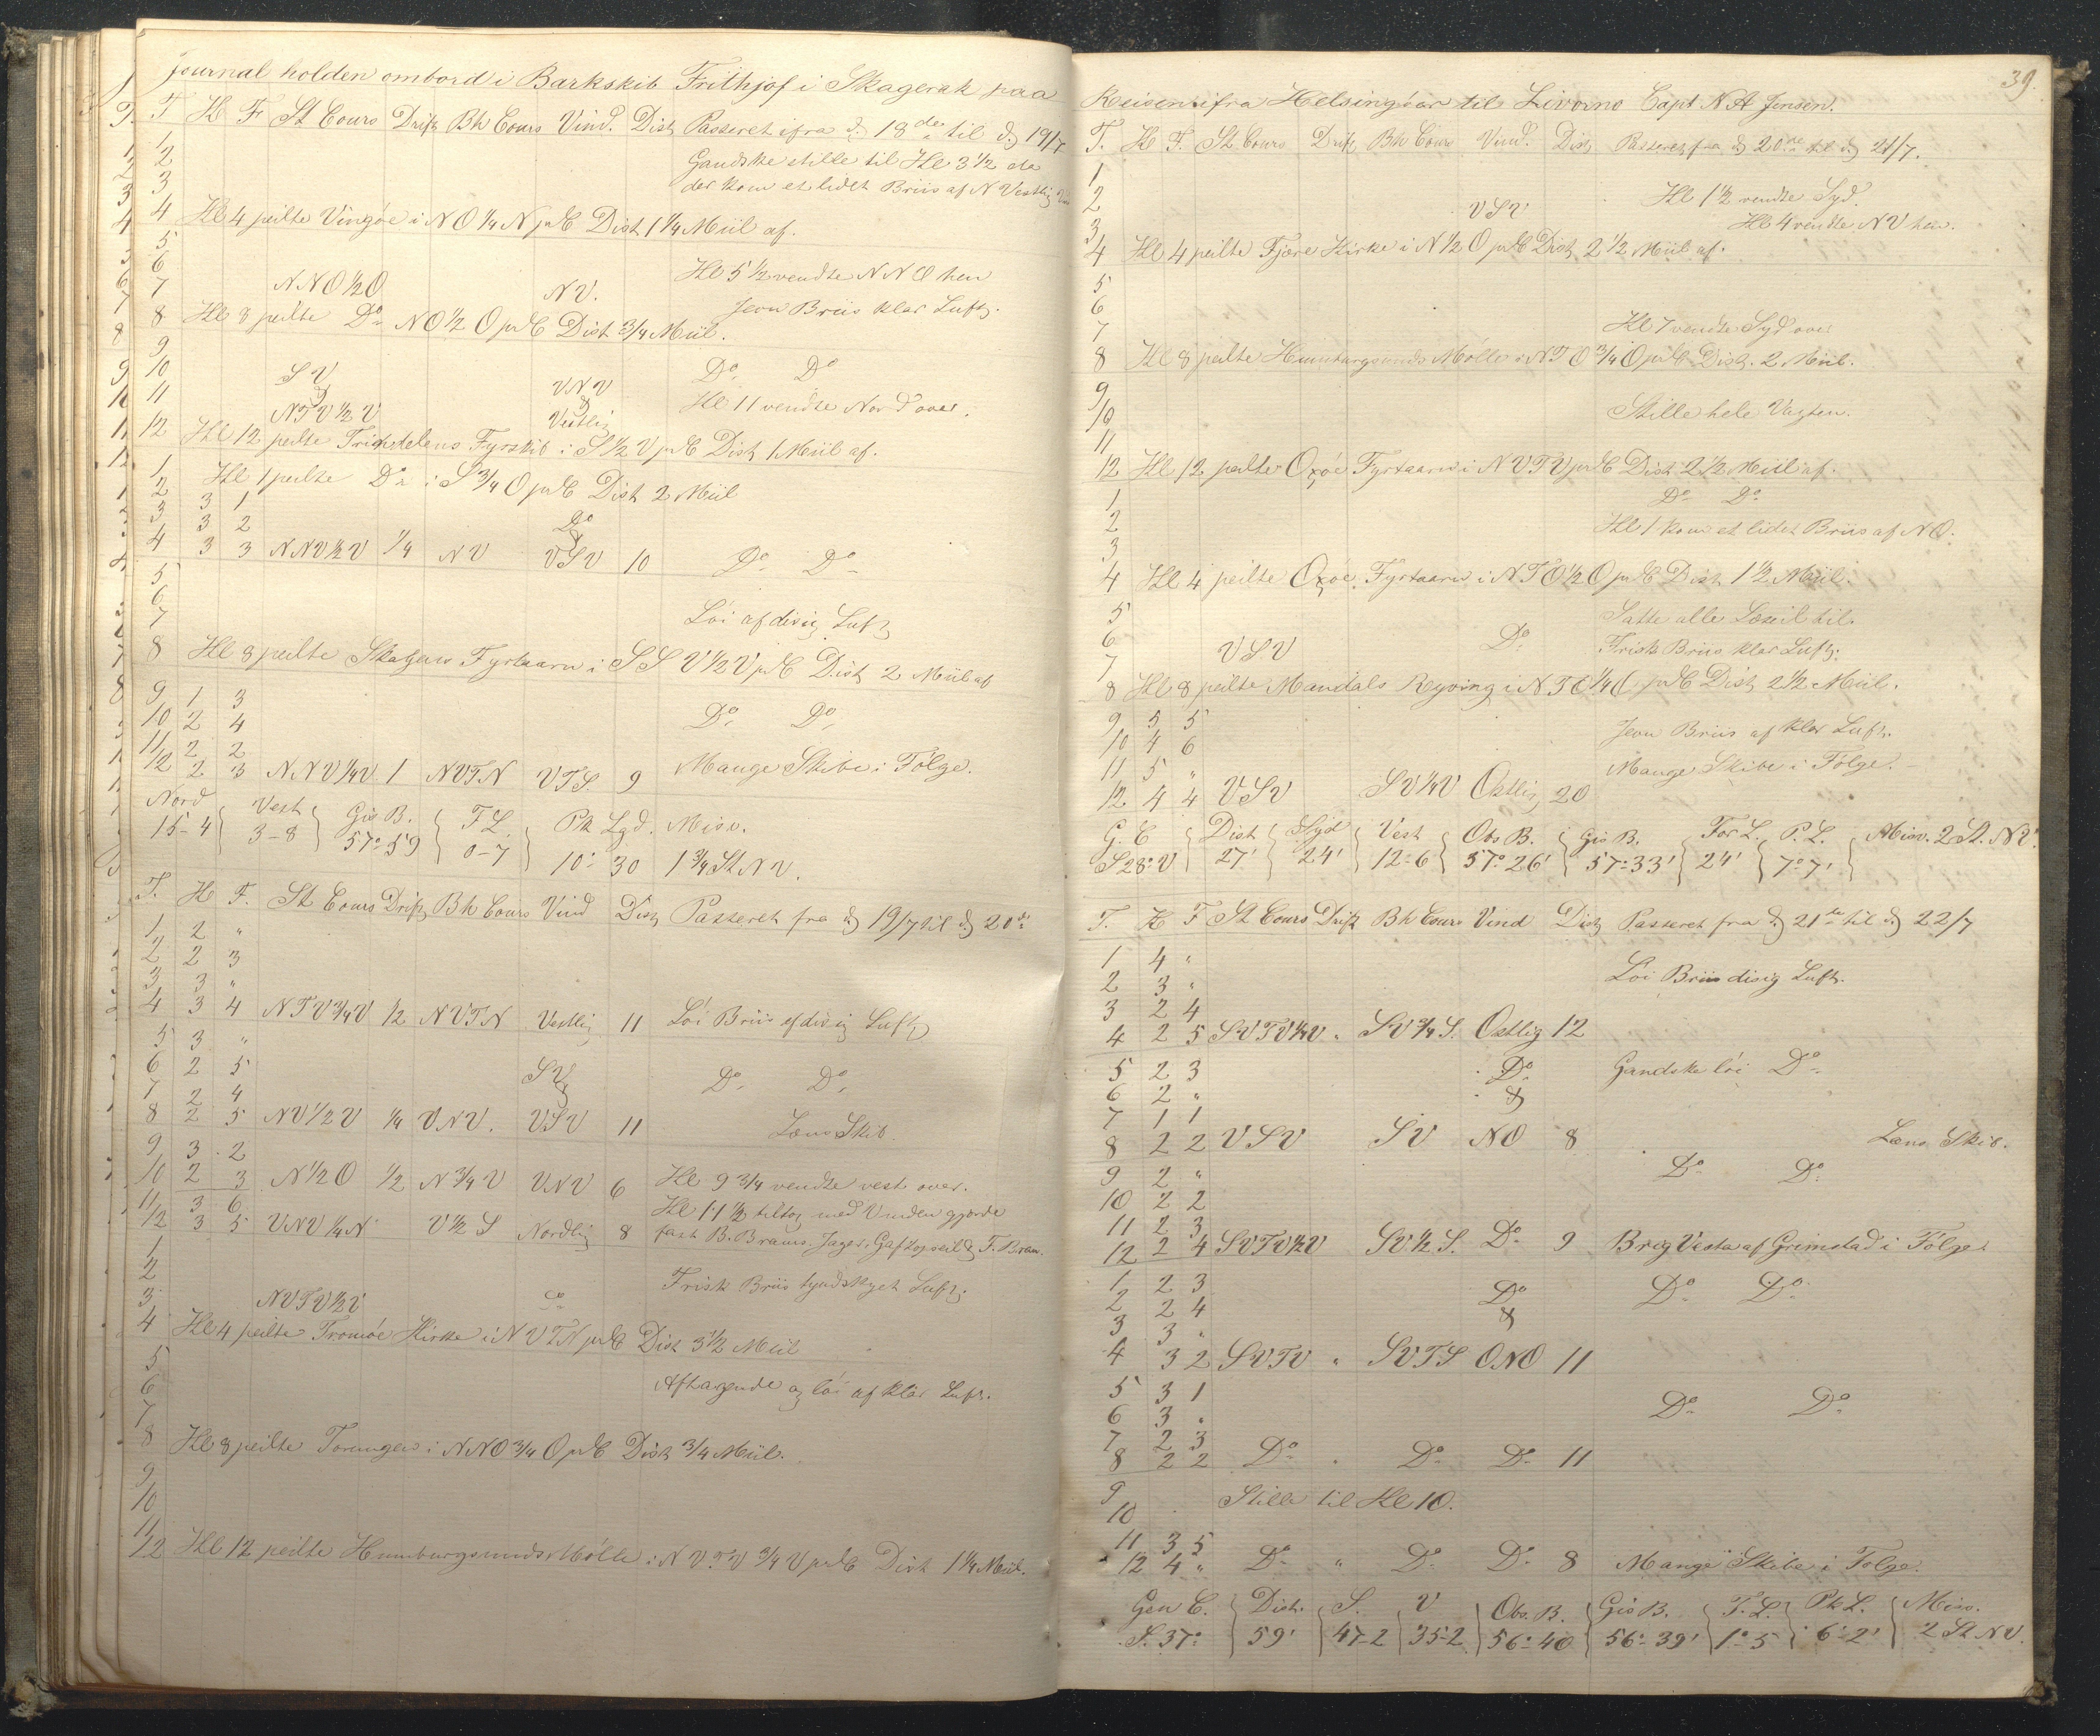 Journal holden ombord i Barkskib Frithjof i Skagerak paa
T H F St Cours Drift Bh Cours Vind. Dist Passeret ifra d. 18de til d 19/7
1
2 Gandske stille til Kl 3 1/2 da
3 der kom et lidet Briis af N Vestlig
4 Kl 4 peilte Vingöe i NO 1/4 N pr C Dist 1 1/4 Miil af.
5
6 Kl 5 1/2 vendte NNO hen
7 NNO 1/2 O NV. Jevn Briis klar Luft.
8 Kl 8 peilte Do NO 1/2 O pr C Dist 3/4 Miil.
9
10 SV VNV Do Do
11 & & Kl 11 vendte Nord over.
NTV 1/2 V Vestlig
12 Kl 12 peilte Trindelens Fyrskib i S 1/2 V pr C Dist 1 Miil af.
1 Kl 1 peilte Do i S 3/4 O pr C Dist 2 Miil
2 3 1
3 3 2 Do &
4 3 3 NNV 1/2 V 1/4 NV VSV 10 Do Do
5
6
7 Löi af disig Luft
8 Kl 8 peilte Skagens Fyrtaarn i SSV 1/2 V pr C Dist 2 Miil af
9 1 3
10 2 4 Do Do
11 2 2
12 2 3 NNV 1/4 V 1 NVTN VTS. 9 Mange Skibe i Følge.
Nord Vest Gis B. T L. Pk Lgd. Misv.
15-4 3-8 57°59 0-7 10° 30 1 3/4 St NV.
T. H F. St Cours Drift Bh Cours Vind Dist Passeret fra d 19/7 til d 20de
1 2 "
2 2 3
3 3 "
4 3 4 NTV 3/4 V 1/2 NVTN Vestlig 11 Löi Briis af disig Luft
5 3 "
6 2 5 SV & Do Do
7 2 4
8 2 5 NV 1/2 V 1/4 VNV. VSV 11 Læns Skib.
9 3 2
10 2 3 N 1/2 O 1/2 N 3/4 V VNV 6 Kl 9 3/4 vendte vest over.
11 3 6 Kl 11 1/2 tiltog med Vinden gjorde
12 3 5 VNV 1/4 N V 1/2 S Nordlig 8 fast B. Bram. Jager. Gaftopseil & F. Bram.
1
2 Frisk Briis tyndskyet Luft.
3 NVTV 1/2 V Do
4 Kl 4 peilte Tromöe Kirke i NVTN pr C Dist 3 1/2 Miil
5
6 Aftagende og löi af klar Luft.
7
8 Kl 8 peilte Torungen i NNO 3/4 O pr C Dist 3/4 Miil.
9
10
11
12 Kl 12 peilte Humburgsunds Mölle i NVTV 3/4 V pr C Dist 1 1/4 Miil.
39.
Reisen ifra Helsingöar til Livorno Capt N A Jensen.
T. H F. St Cours Drift Bh Cours Vind. Dist Passeret fra d 20de til d 21/7.
1
2 VSV Kl 1 1/2 vendte Syd.
3 Kl 4 vendte NV hen.
4 Kl 4 peilte Fjære Kirke i N 1/2 O pr C Dist 2 1/2 Miil af.
5
6
7 Kl 7 vendte Syd over
8 Kl 8 peilte Humburgsunds Mölle i NTO 3/4 O pr C Dist. 2 Miil.
9
10 Stille hele Vagten.
11
12 Kl 12 peilte Oxöe Fyrtaarn i NVTV pr C Dist 2 1/2 Miil af.
1 Do Do
2 Kl 1 kom et lidet Briis af NO.
3
4 Kl 4 peilte Oxöe Fyrtaarn i NTO 1/2 O pr C Dist 1 1/2 Miil.
5 Satte alle Læseil til.
6 VSV Do Frisk Briis klar Luft.
7
8 Kl 8 peilte Mandals Ryving i NTO 1/4 O pr C Dist 2 1/2 Miil.
9 5 5
10 4 6 Jevn Briis af klar Luft.
11 5 " Mange Skibe i Følge.
12 4 4 VSV SV 1/4 V Ostlig 20
G. C Dist Syd Vest Obs B. Gis B. For L. P. L. Misv. 2 St. NV.
S 28° V 27' 24' 12-6 57°26' 57°33' 24' 7°7'
T. H F St Cours Drift Bh Cours Vind Dist Passeret fra d 21de til d 22/7
1 4 "
2 3 " Löi Briis disig Luft.
3 2 4
4 2 5 SVTV 1/4 V " SV 3/4 S. Ostlig 12
5 2 3 Do Gandske löi Do
6 2 " &
7 1 1
8 2 2 VSV SV NO 8 Læns Skib.
9 2 " Do Do
10 2 2
11 2 3
12 2 4 SVTV 1/2 V SV 1/2 S. Do 9 Brig Vesta af Grimstad i Følge
1 2 3 Do Do Do
2 2 4 &
3 3 "
4 3 2 SVTV " SVTS ONO 11
5 3 1 Do Do
6 3 "
7 2 3
8 2 2 Do " Do Do 11
9 Stille til Kl 10.
10
11 3 5
12 4 " Do " Do Do 8 Mange Skibe i Følge.
Gen C. Dist. S. V Obs. B. Gis B. F. L. Pk L. Misv.
S. 37° 59' 47-2 35-2 56°40 56°39' 1°5 6°2' 2 St NV.